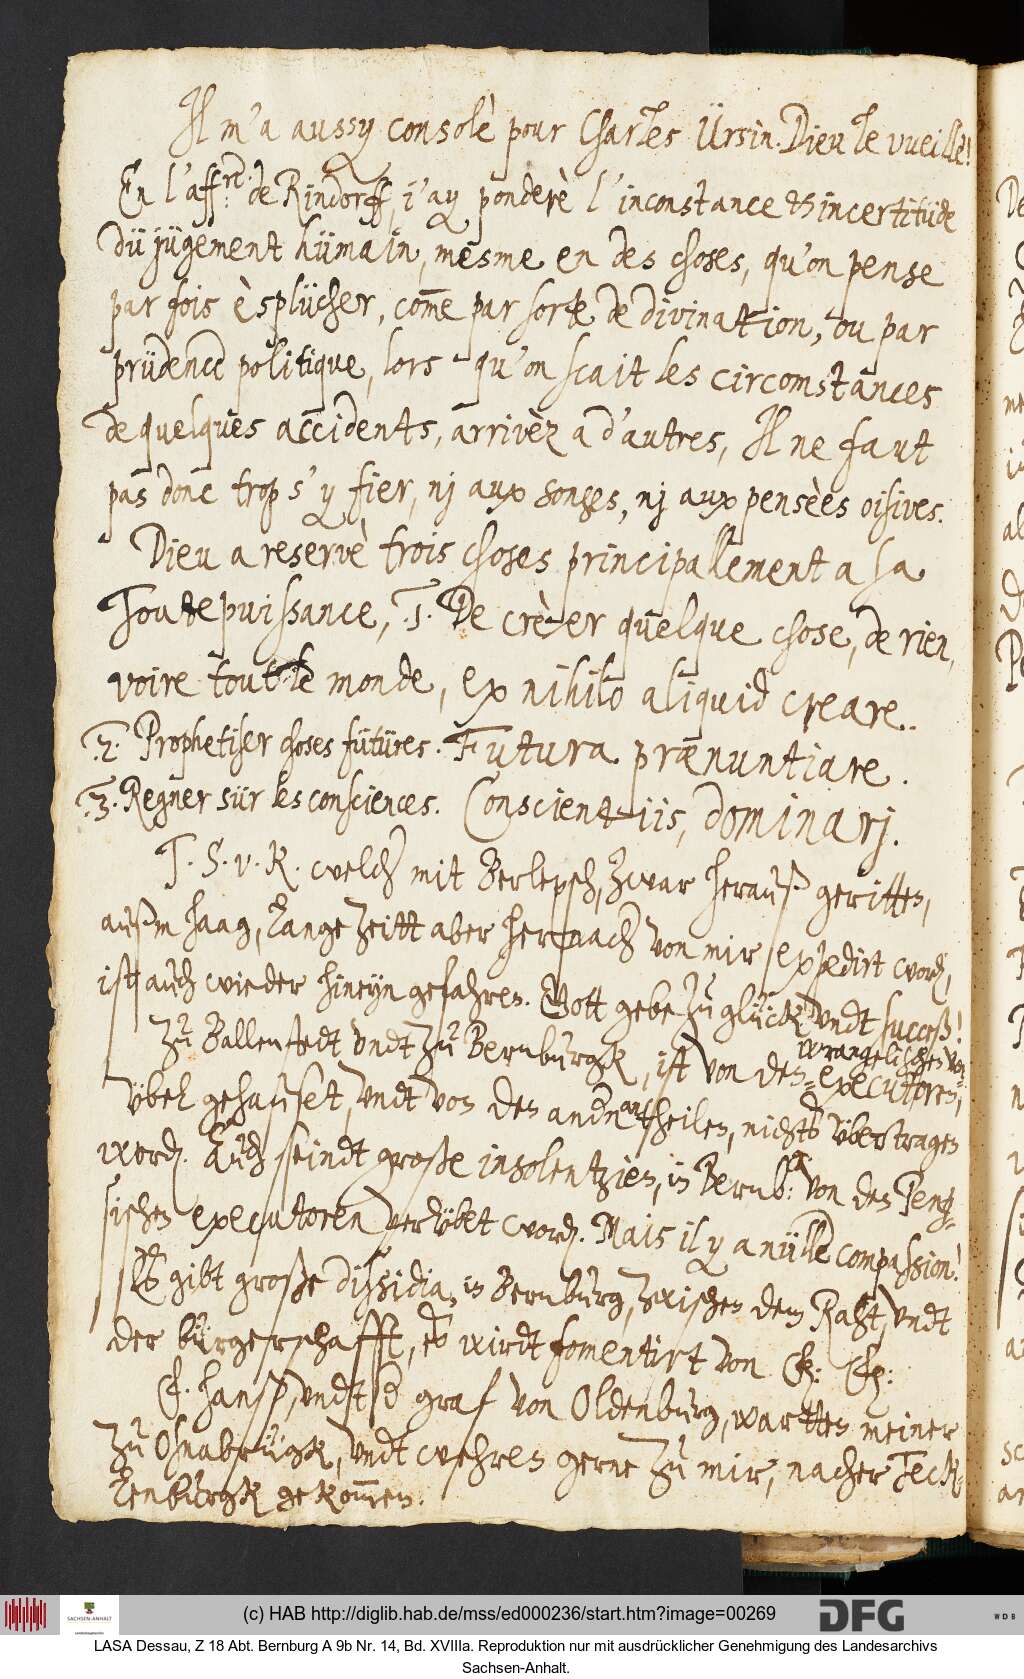 Il m'a aussy consolè pour Charles Ürsin. Dieu le vueille!
En l'aff.re de Rindorff, i'ay ponderè l'inconstance et incertitüde
dü jügement hümain, mesme en des choses, qu'on pense
par fois èsplücher, com̅e par sorte de divination, ou par
prüdence politique, lors qu'on scait les circomstances
de quelques accidents, arrivèz a d'autres, Il ne faut
pas donc trop s'y fier, nj aux songes, nj aux pensèes oisives.
Dieu a reservè trois choses principallement a sa
Toutepuissance, .1. De crèer quelque chose, de rien,
voire tout le monde, ex nihilo aliquid creare..
.2. Prophetiser choses fütüres. Futura prænuntiare.
.3. Regner sür les consciences. Conscientiis, dominarj.
T. S. v. K. welch mit Berlepsch, zwar herauß geritten,
außm Haag, lange zeitt aber hernach von mir expedirt word,
ist auch wieder hineyn gefahren. Gott gebe zu glück undt succeß!
Zu Ballenstedt undt zu Bernburgk, ist von den wrangelischen
executoren,
übel gehauset, undt von den andn antheilen, nichts übertragen
word. Auch seindt große insolentzien, in Bernb: von den Peng-
sischen executoren verübet word. Mais il y a nülle compassion!
Es gibt große dissidia, in Bernburg, zwischen dem Raht, undt
der bürgerschafft, es wirdt fomentirt von
hanß, undt graf von Oldenburg, wartten meiner
zu Osnabrügk, undt wehren gerne zu mir, nacher Teck-
lenburgk gekom̅en.
(c) HAB http://diglib.hab.de/mss/ed000236/start.htm?image=00269
SACHSEN-ANHALT
DFG
WDB
LASA Dessau, Z 18 Abt. Bernburg A 9b Nr. 14, Bd. XVIIIa. Reproduktion nur mit ausdrücklicher Genehmigung des Landesarchivs
Sachsen-Anhalt.